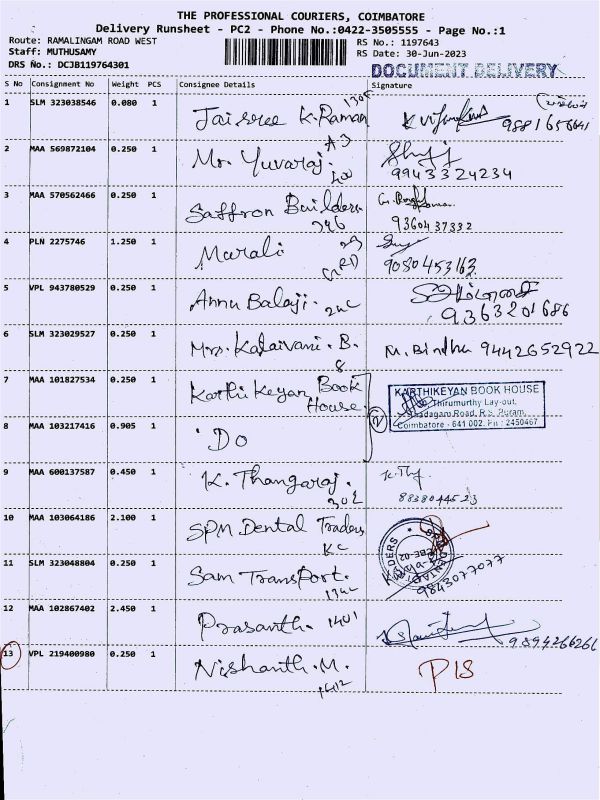 THE PROFESSIONAL COURIERS, COIMBATORE
Delivery Runsheet - PC2 - Phone No.:0422-3505555 - Page No.:1
Route: RAMALINGAM ROAD WEST
RS No.: 1197643
Staff: MUTHUSAMY
RS Date: 30-Jun-2023
DRS No.: DCJB119764301
DOCUMENT DELIVERY
S No Consignment No Weight PCS Consignee Details Signature
1 SLM 323038546 0.080 1 Jaisree K.Raman
2 MAA 569872104 0.250 1 Mr. Yuvaraj. A3 9943324234
3 MAA 570562466 0.250 1 Saffron Builders 9360437332
4 PLN 2275746 1.250 1 Murali 9080453163
5 VPL 943780529 0.250 1 Annu Balaji. 9363201686
6 SLM 323029527 0.250 1 Mrs. Kalaivani. B. 8 M. Bindhu 9442652922
7 MAA 101827534 0.250 1 Karthikeyan Book House
KARTHIKEYAN BOOK HOUSE
Thirumurthy Lay-out,
Thadagam Road, R.S. Puram,
Coimbatore - 641 002. Ph : 2450467
8 MAA 103217416 0.905 1 Do
9 MAA 600137587 0.450 1 K. Thangaraj. 302
10 MAA 103064186 2.100 1 SPM Dental Traders
11 SLM 323048804 0.250 1 Sam Transport. 9843077077
12 MAA 102867402 2.450 1 Prasanth. 1401 9894266261
13 VPL 219400980 0.250 1 Nishanth. M. 1412